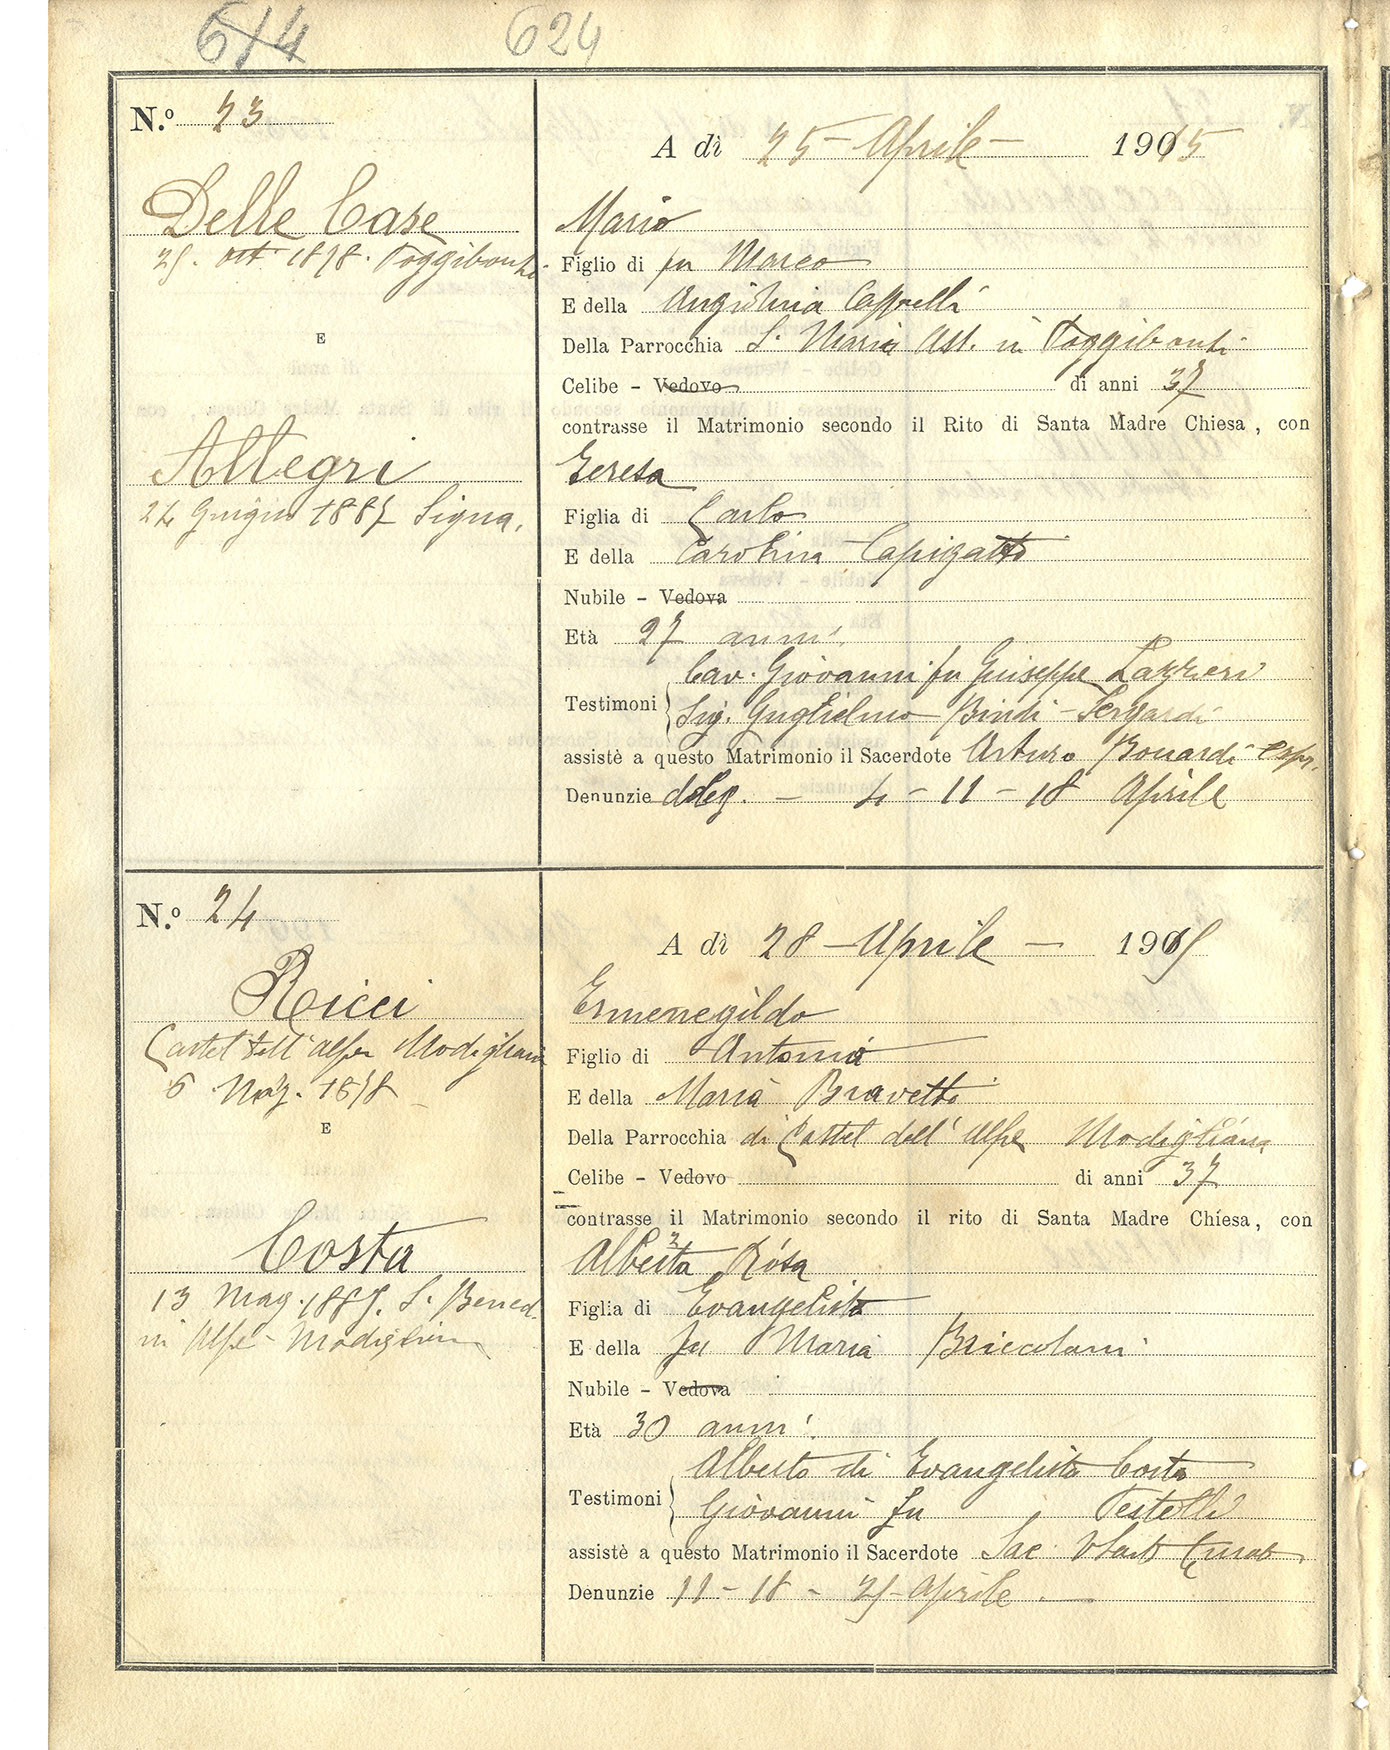 614 624
N.º 23
A dì 25 - Aprile - 1915
Delle Case
Mario
25. ott. 1878. Poggibonsi
Figlio di fu Marco
E della Angiolina Cappelli
E
Della Parrocchia S. Maria Ass. in Poggibonsi
Celibe - Vedovo di anni 37
contrasse il Matrimonio secondo il Rito di Santa Madre Chiesa, con
Allegri
Teresa
24 Giugno 1887 Signa.
Figlia di Carlo
E della Carolina Capigatti
Nubile - Vedova
Età 27 anni.
Testimoni Cav. Giovanni fu Giuseppe Lazzeri
Sig. Guglielmo Bindi-Sergardi
assistè a questo Matrimonio il Sacerdote Arturo Bonardi
Denunzie - 4 - 11 - 18 Aprile
N.º 24
A dì 28 - Aprile - 1915
Ricci
Ermenegildo
Castel dell'alpe Modigliana
Figlio di Antonio
6 Mag. 1878
E della Maria Bravetti
E
Della Parrocchia di Castel dell'Alpe Modigliana
Celibe - Vedovo di anni 37
contrasse il Matrimonio secondo il rito di Santa Madre Chiesa, con
Costa
Alberta Rosa
13 Mag. 1885. S. Bened.
Figlia di Evangelista
in Alpe - Modigliana
E della fu Maria Briccolani
Nubile - Vedova
Età 30 anni.
Testimoni Alberto di Evangelista Costa
Giovanni fu Testelli
assistè a questo Matrimonio il Sacerdote Sac.
Denunzie 11 - 18 - 25 - Aprile